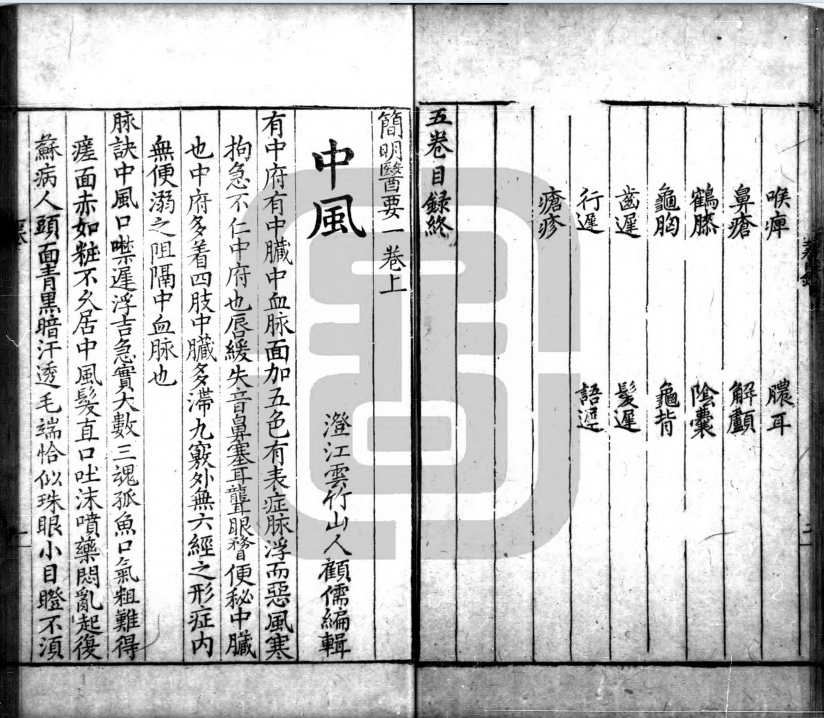 喉痺 膿耳
鼻瘡 解顱
鶴膝 陰囊
龜胸 龜背
齒遲 髮遲
行遲 語遲
瘡疹
五卷目録終
簡明醫要一卷上
澄江雲竹山人顧儒編輯
中風
有中府有中臓中血脉面加五色有表症脉浮而惡風寒
拘急不仁中府也唇緩失音鼻塞耳聾眼瞀便秘中臓
也中府多着四肢中臓多滯九竅外無六經之形症内
無便溺之阻隔中血脉也
脉訣中風口噤遲浮吉急實大數三魂孤魚口氣粗難得
瘥面赤如粧不久居中風髮直口吐沫噴藥悶亂起復
蘇病人頭面青黑暗汗透毛端恰似珠眼小目瞪不須